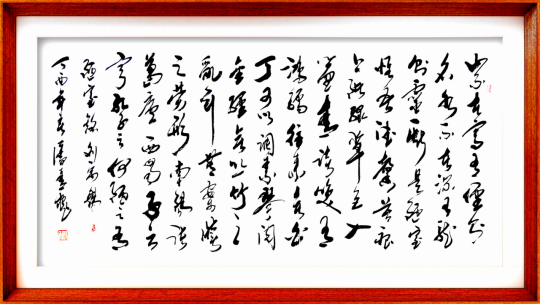 山不在高有僊則
名水不在深有龍
則靈斯是陋室
惟吾德馨苔痕
上階綠草色入
簾青談笑有
鴻儒往來無白
丁可以調素琴閱
金經無絲竹之
亂耳無案牘
之勞形南陽諸
葛廬西蜀子云
亭孔子云何陋之有
陋室銘劉禹錫
丁酉年